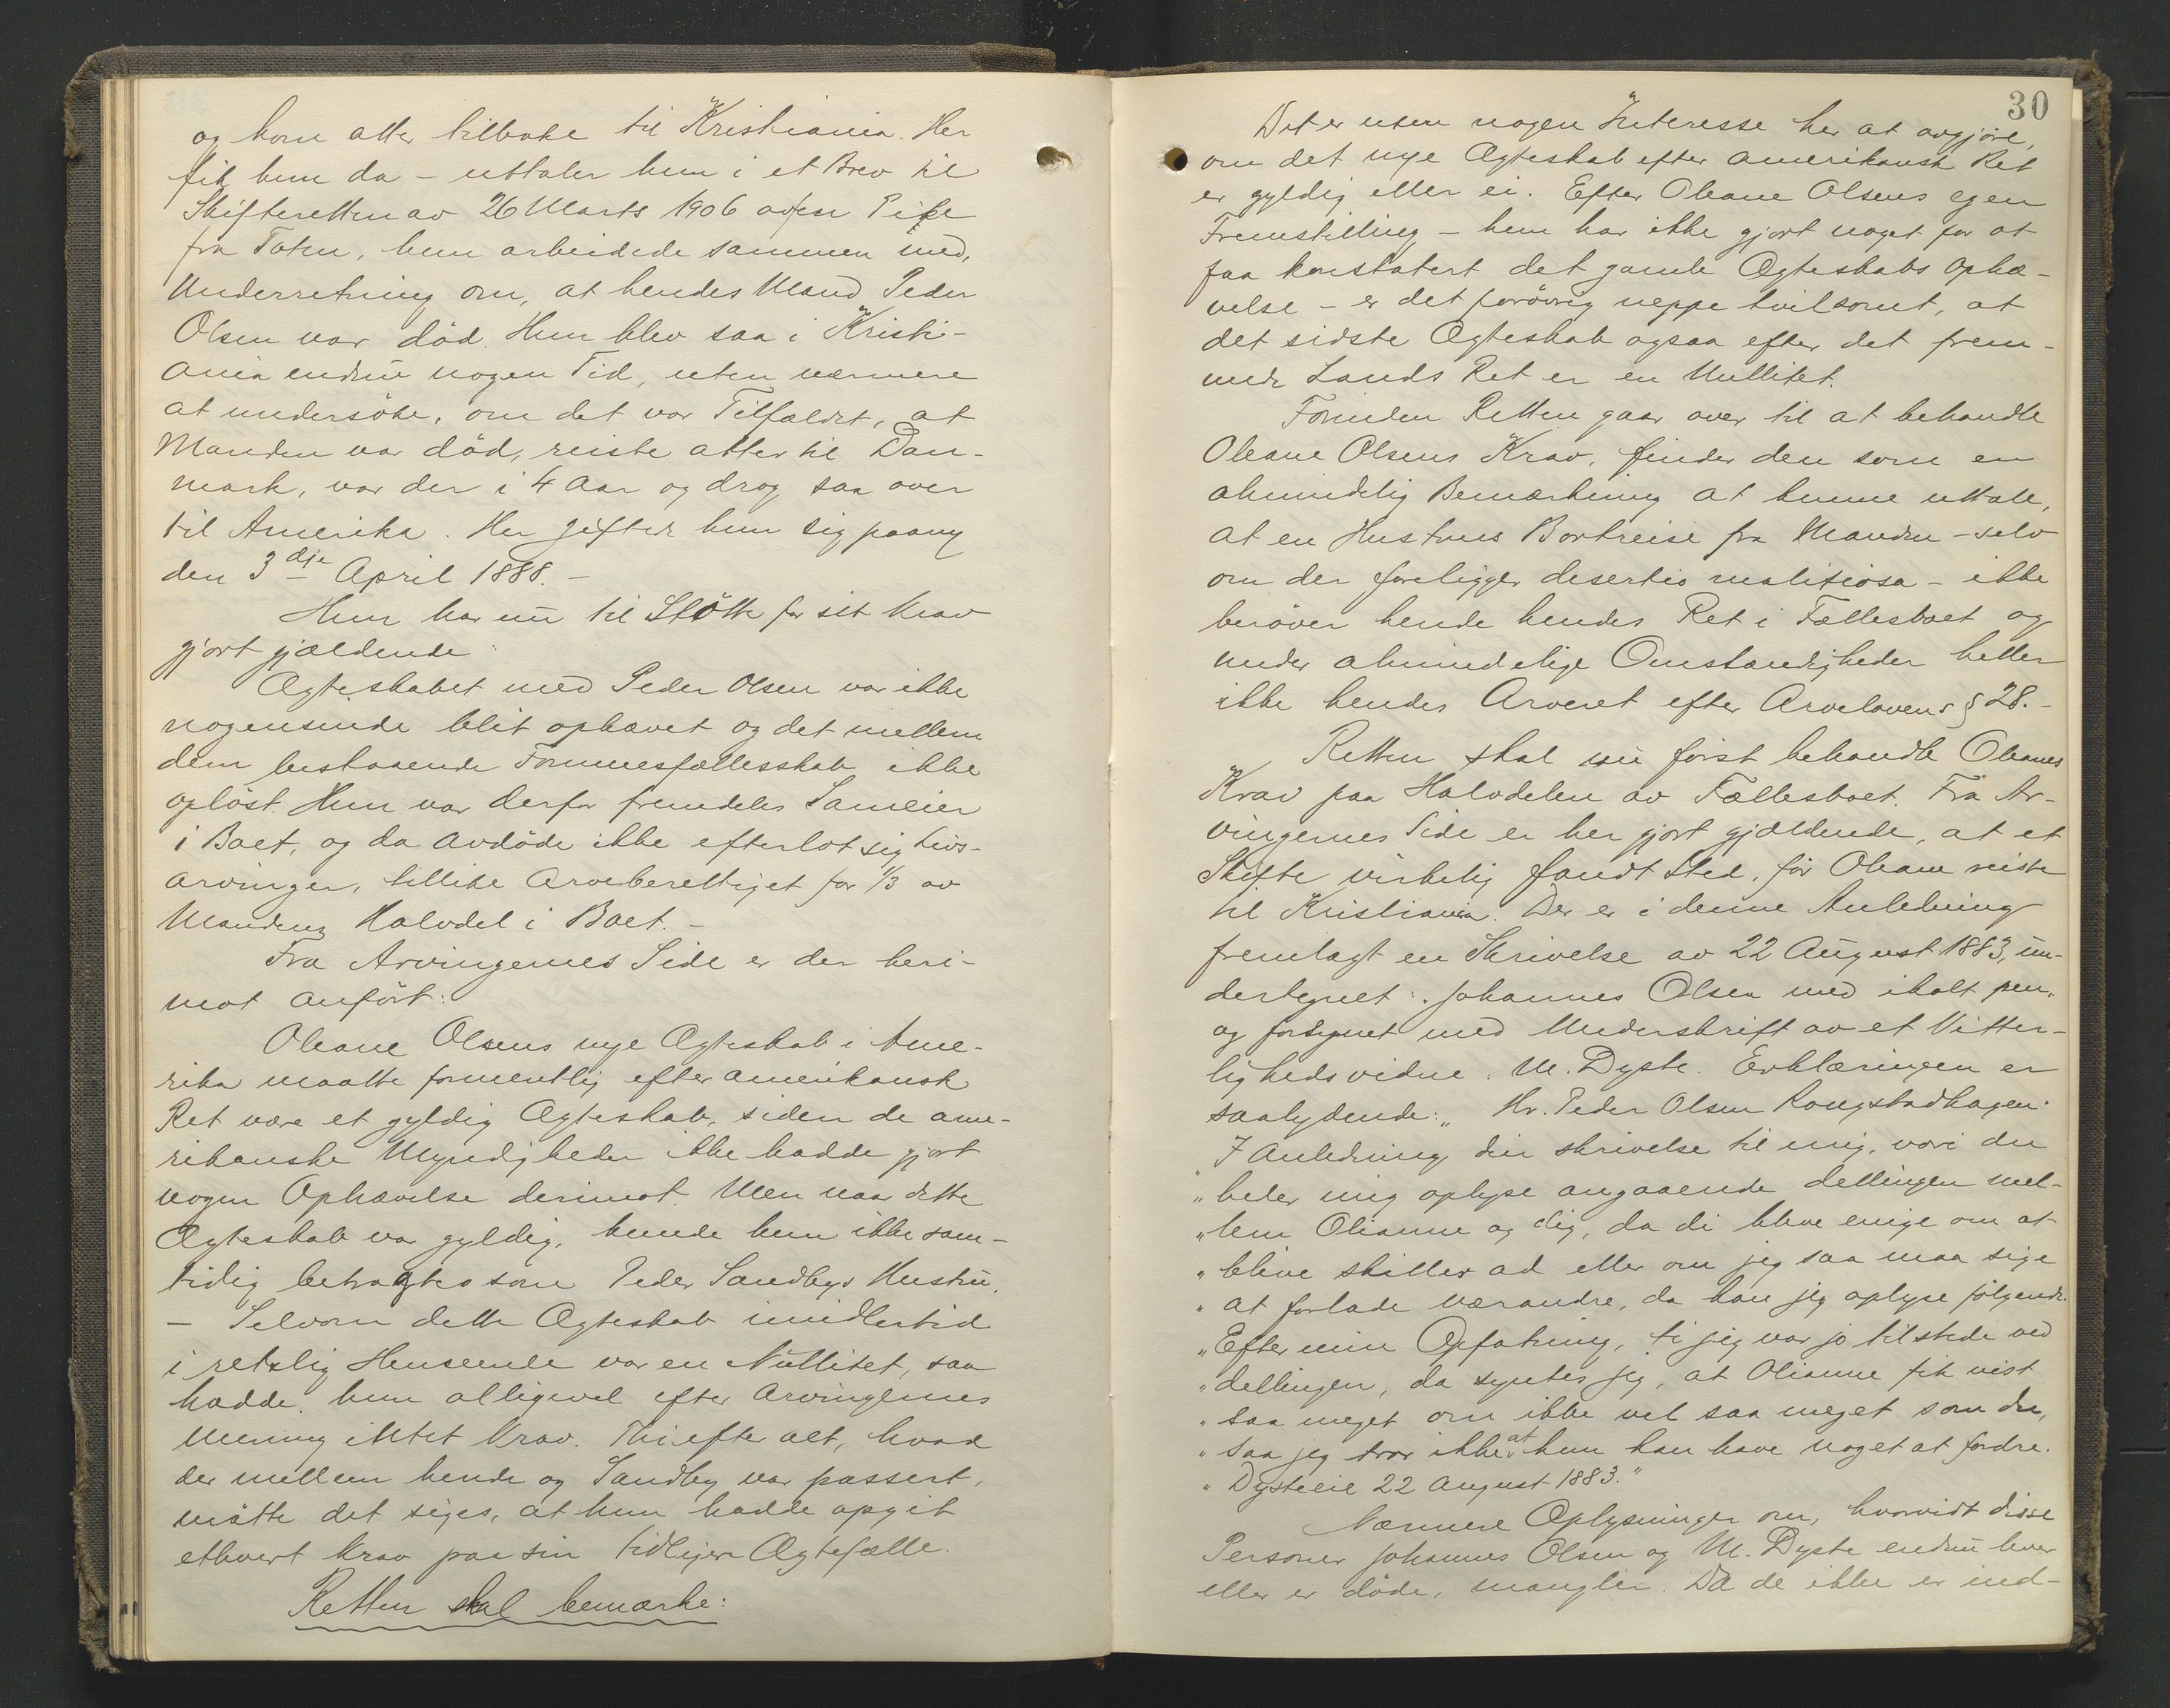 og kom atter tilbake til Kristiania. Her
fik hun da – uttaler hun i et Brev til
Skifteretten av 26 Marts 1906 av en Pike
fra Toten, hun arbeidede sammen med,
Underretning om, at hendes Mand Peder
Olsen var död. Hun blev saa i Kristi-
ania endnu nogen Tid, uten nærmere
at undersöke, om det var Tilfældet, at
Manden var död, reiste atter til Dan-
mark, var der i 4 Aar og drog saa over
til Amerika. Her giftede hun sig paany
den 3dje April 1888. –
Hun har nu til Stötte for sit Krav
gjort gjældende:
Ægteskabet med Peder Olsen var ikke
nogensinde blit ophævet og det mellem
dem bestaaende Formuesfællesskab ikke
oplöst. Hun var derfor fremdeles Sameier
i Boet, og da avdöde ikke efterlot sig Livs-
arvinger, tillike arveberettiget for 1/3 av
Mandens Halvdel i Boet. –
Fra Arvingernes Side er der heri-
mot anfört:
Oleane Olsens nye Ægteskab i Ame-
rika maatte formentlig efter amerikansk
Ret være et gyldig Ægteskab, siden de ame-
rikanske Myndigheder ikke hadde gjort
nogen Ophævelse derimot. Men naar dette
Ægteskab var gyldig, kunde hun ikke sam-
tidig betragtes som Peder Sandbys Hustru.
– Selvom dette Ægteskab imidlertid
i retslig Henseende var en Nullitet, saa
hadde hun alligevel efter Arvingernes
Mening intet Krav. Thi efter alt, hvad
der mellem hende og Sandby var passert,
måtte det siges, at hun hadde opgit
ethvert Krav paa sin tidligere Ægtefælle.
Retten skal bemærke:
30
Det er uten nogen Interesse her at avgjöre,
om det nye Ægteskab efter amerikansk Ret
er gyldig eller ei. Efter Oleane Olsens egen
Fremstilling – hun har ikke gjort noget for at
faa konstatert det gamle Ægteskabs Ophæ-
velse – er det forövrig neppe tvilsomt, at
det sidste Ægteskab ogsaa efter det frem-
mede Lands Ret er en Nullitet.
Forinden Retten gaar over til at behandle
Oleane Olsens Krav, finder den som en
almindelig Bemærkning at kunne uttale,
at en Hustrues Bortreise fra Manden – selv
om der foreligger desertio malitiosa – ikke
beröver hende hendes Ret i Fællesboet og
under almindelige Omstændigheder heller
ikke hendes Arveret efter Arvelovens § 28. –
Retten skal nu först behandle Oleanes
Krav paa Halvdelen av Fællesboet. Fra Ar-
vingernes Side er her gjort gjældende, at et
Skifte virkelig fandt Sted, för Oleane reiste
til Kristiania. Der er i denne Anledning
fremlagt en Skrivelse av 22 August 1883, un-
dertegnet: Johannes Olsen med iholt pen,
og forsynet med Underskrift av et Vitter-
lighedsvidne. M. Dyste. Erklæringen er
saalydende: „Hr. Peder Olsen Rongstadhagen.
„I Anledning din skrivelse til mig, vori du
„beder mig oplyse angaaende dellingen mel-
„lem Olianne og dig, da di bleve enige om at
„blive skiller ad eller om jeg saa maa sige
„at forlade værandre, da kan jeg oplyse fölgende.
„Efter min Opfatning, ti jeg var jo tilstede ved
„dellingen, da syntes jeg, at Olianne fik vist
„saa meget om ikke vel saa meget som du,
„saa jeg tror ikke at hun kan have noget at fordre.
„Dysteeie 22 August 1883."
Nærmere Oplysninger om, hvorvidt disse
Personer Johannes Olsen og M. Dyste endnu lever
eller er döde, mangler. Da de ikke er ind-